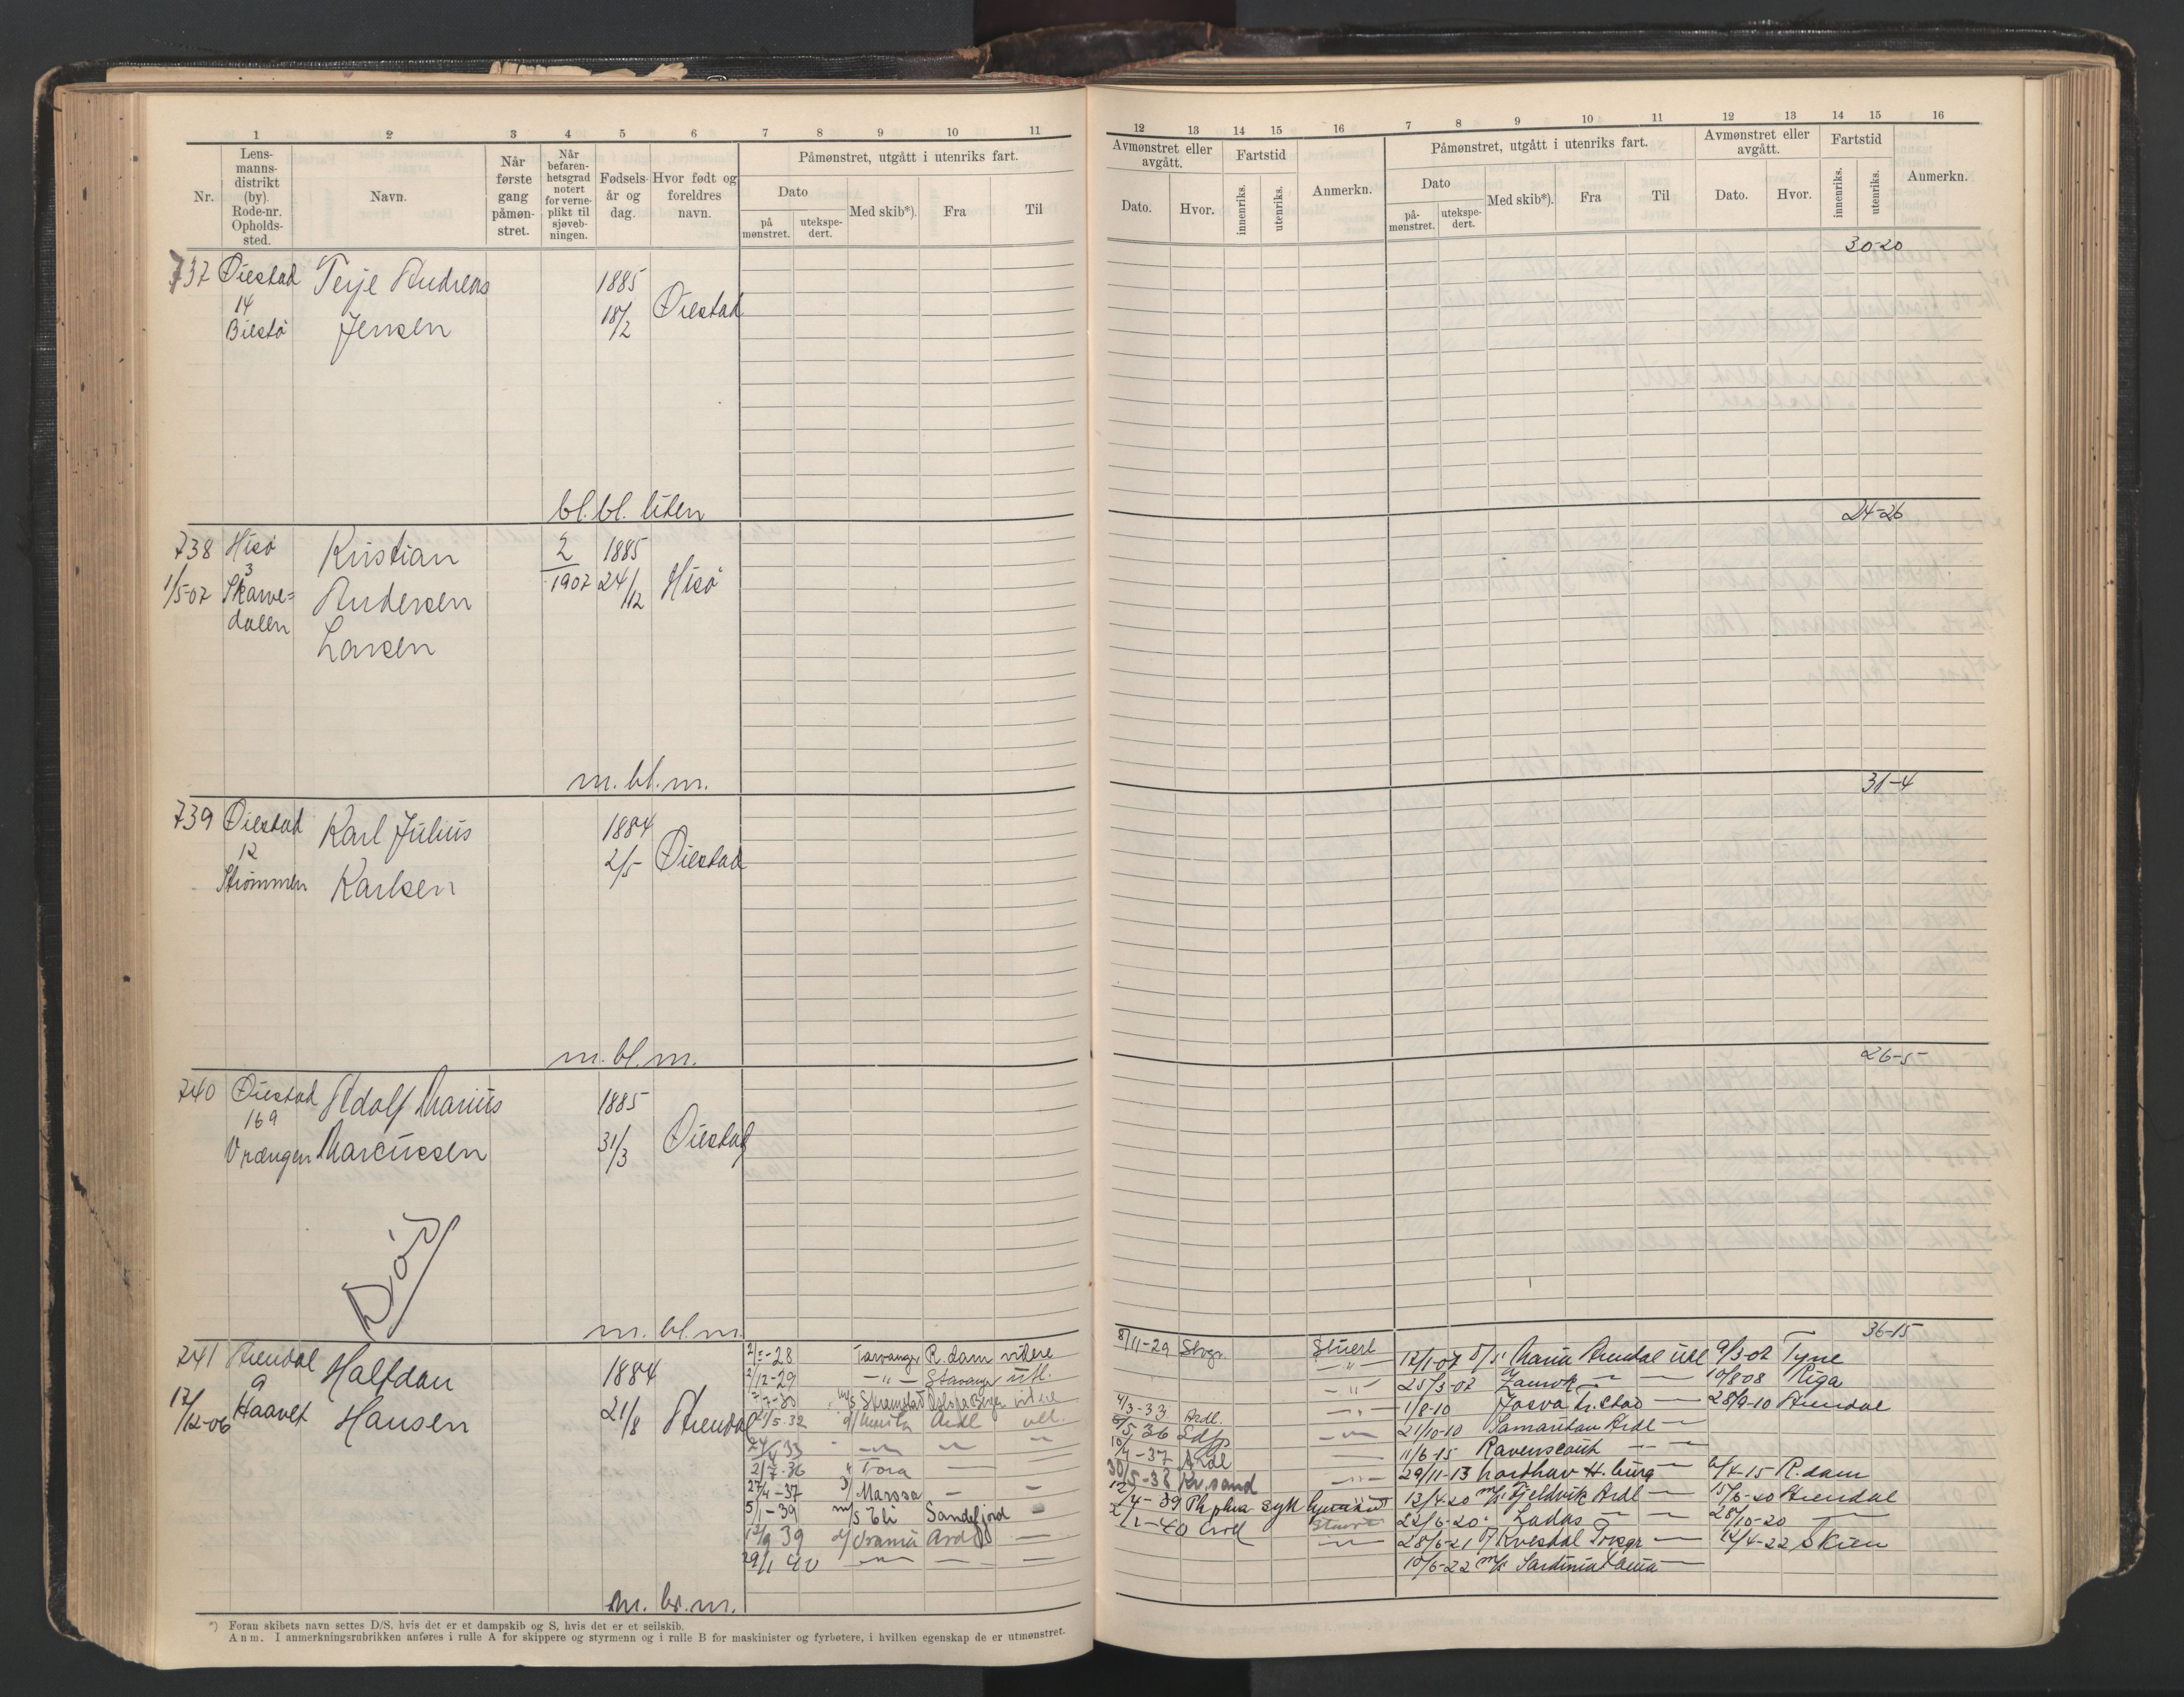 1 2 3 4 5 6 7 8 9 10 11
Nr. Lens-manns-distrikt (by). Rode-nr. Opholds-sted. Navn. Når første gang påmøn-stret. Når befaren-hetsgrad notert for verne-plikt til sjøveb-ningen. Fødsels-år og dag. Hvor født og foreldres navn.
Påmønstret, utgått i utenriks fart.
Dato på mønstret. utekspe-dert. Med skib*). Fra Til
737 Øiestad Terje Andreas 1885
14 18/2 Øiestad
Biestø Jensen
bl. bl. liten
738 Hisø Kristian 2 1885
1/5-07 3 Skarve= Andersen 1907 24/12 Hisø
dalen Larsen
m. bl. m.
739 Øiestad Karl Julius 1884
12 2/5 Øiestad
Strømmen Karlsen
m. bl. m.
740 Øiestad Adolf Marius 1885
169 31/3 Øiestad
Vrængen Marcussen
Død
m. bl. m.
741 Arendal Halfdan 1884
9
17/12-06 Haavet Hansen 21/8 Arendal
-28 Tarvanger R.dam videre
/12-29 -"- Stavanger utl.
5.32 Ardl utl.
24/ 33
21/7-36 " Tora —
27/4-37 Marosa — —
5/1-39 m/s Eli Sandefjord -
12/9 39 d/ Urania Ardl —
29/1 40
m. br. m.
*) Foran skibets navn settes D/S, hvis det er et dampskib og S, hvis det er et seilskib.
Anm. I anmerkningsrubrikken anføres i rulle A for skippere og styrmenn og i rulle B for maskinister og fyrbøtere, i hvilken egenskap de er utmønstret.
12 13 14 15 16 7 8 9 10 11 12 13 14 15 16
Avmønstret eller avgått. Fartstid Anmerkn. Påmønstret, utgått i utenriks fart. Avmønstret eller avgått. Fartstid Anmerkn.
Dato. Hvor. innenriks. utenriks. Dato på-mønstret. utekspe-dert. Med skib*). Fra Til Dato. Hvor. innenriks. utenriks.
30-20
24-26
31-4
26-5
36-15
8/11-29 Stvgr. Stuert 17/1-07 D/S Maria Arendal utl 9/3-07 Tyne
-"- 25/3-07 — — 10/8-08 Riga
4/3-33 Ardl. -"- 1/8-10 Josva Gr.stad — 28/9-10 Arendal
5/5 36 Sdfj 21/10-10 Samaritan Ardl —
-37 Ardl 11/6-15 Ravenscourt — —
30/5-38 Kr.sand -"- 29/11-13 Nordhav H.burg — /4-15 R.dam
/4-39 Ph.phia 13/4-20 m/s Fjeldvik Ardl — 15/6-20 Arendal
2/1-40 Stuert 22/6-20 Ladas — — 28/10-20 —
28/6-21 Kvesdal Porsgr — 12/4-22 Skien
10/6-22 m/s Sardinia —